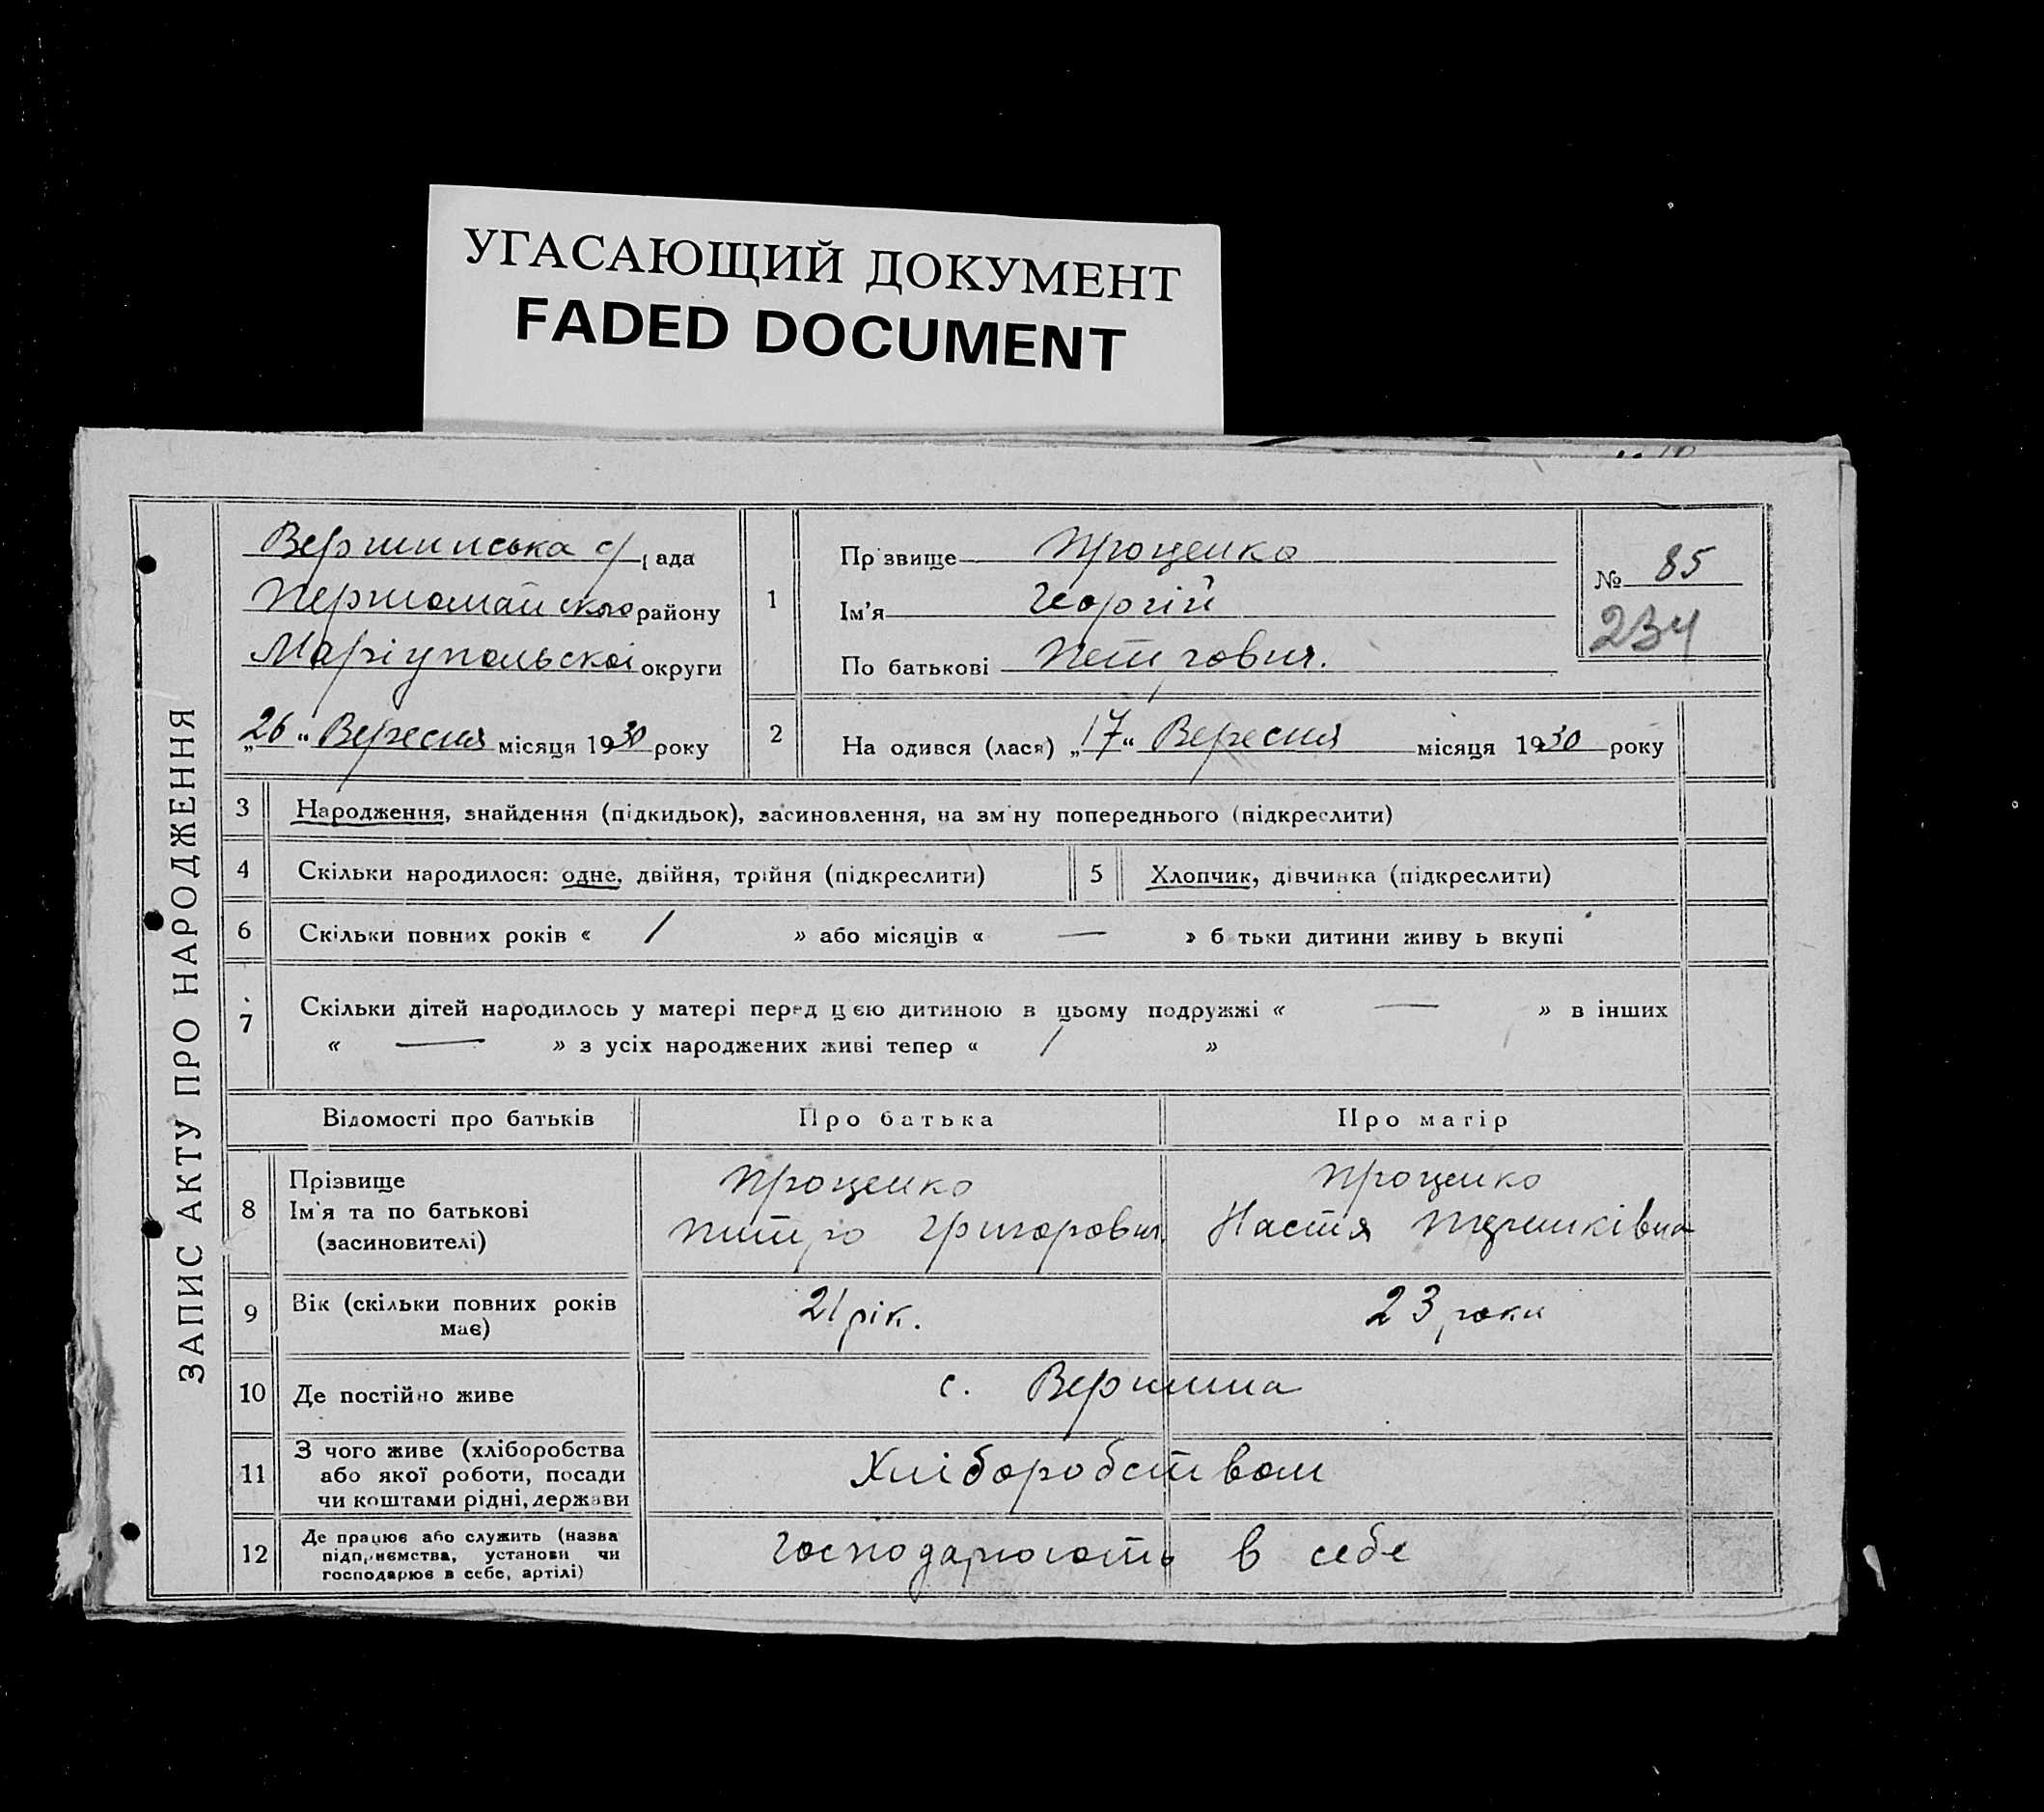 УГАСАЮЩИЙ ДОКУМЕНТ
FADED DOCUMENT
ЗАПИС АКТУ ПРО НАРОДЖЕННЯ
Вершинська с/рада
Першомайського району
Маріупольскої округи
„26“ Вересня місяця 1930 року
1
Пр звище Проценко
Ім'я Георгій
По батькові Петрович.
№ 85
234
2
На одився (лася) „17“ Вересня місяця 1930 року
3 Народження, знайдення (підкидьок), засиновлення, на зм ну попереднього (підкреслити)
4 Скільки народилося: одне, двійня, трійня (підкреслити)
5 Хлопчик, дівчинка (підкреслити)
6 Скільки повних років « 1 » або місяців « — » б тьки дитини живу ь вкупі
7 Скільки дітей народилось у матері перед цією дитиною в цьому подружжі « — » в інших
« — » з усіх народжених живі тепер « 1 »
Відомості про батьків Про батька Про матір
8 Прізвище
Ім'я та по батькові
(засиновителі)
Проценко
Питро Григорович.
Проценко
Настя
9 Вік (скільки повних років
має)
21 рік.
23 роки
10 Де постійно живе
с. Вершина
11 З чого живе (хліборобства
або якої роботи, посади
чи коштами рідні, держави
Хліборобством
12 Де працює або служить (назва
підприємства, установи чи
господарює в себе, артілі)
господарюють в себе